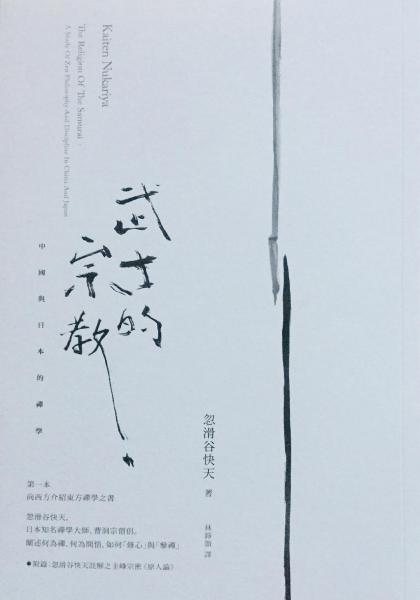 Kaiten Nukariya
The Religion Of The Samurai：
A Study Of Zen Philosophy And Discipline In China And Japan
武士的
宗教
中國與日本的禪學
忽滑谷快天 著
林錚顗 譯
第一本
向西方介紹東方禪學之書
忽滑谷快天，
日本知名禪學大師、曹洞宗僧侶。
闡述何為禪、何為開悟、如何「修心」與「參禪」
●附錄：忽滑谷快天註解之圭峰宗密《原人論》